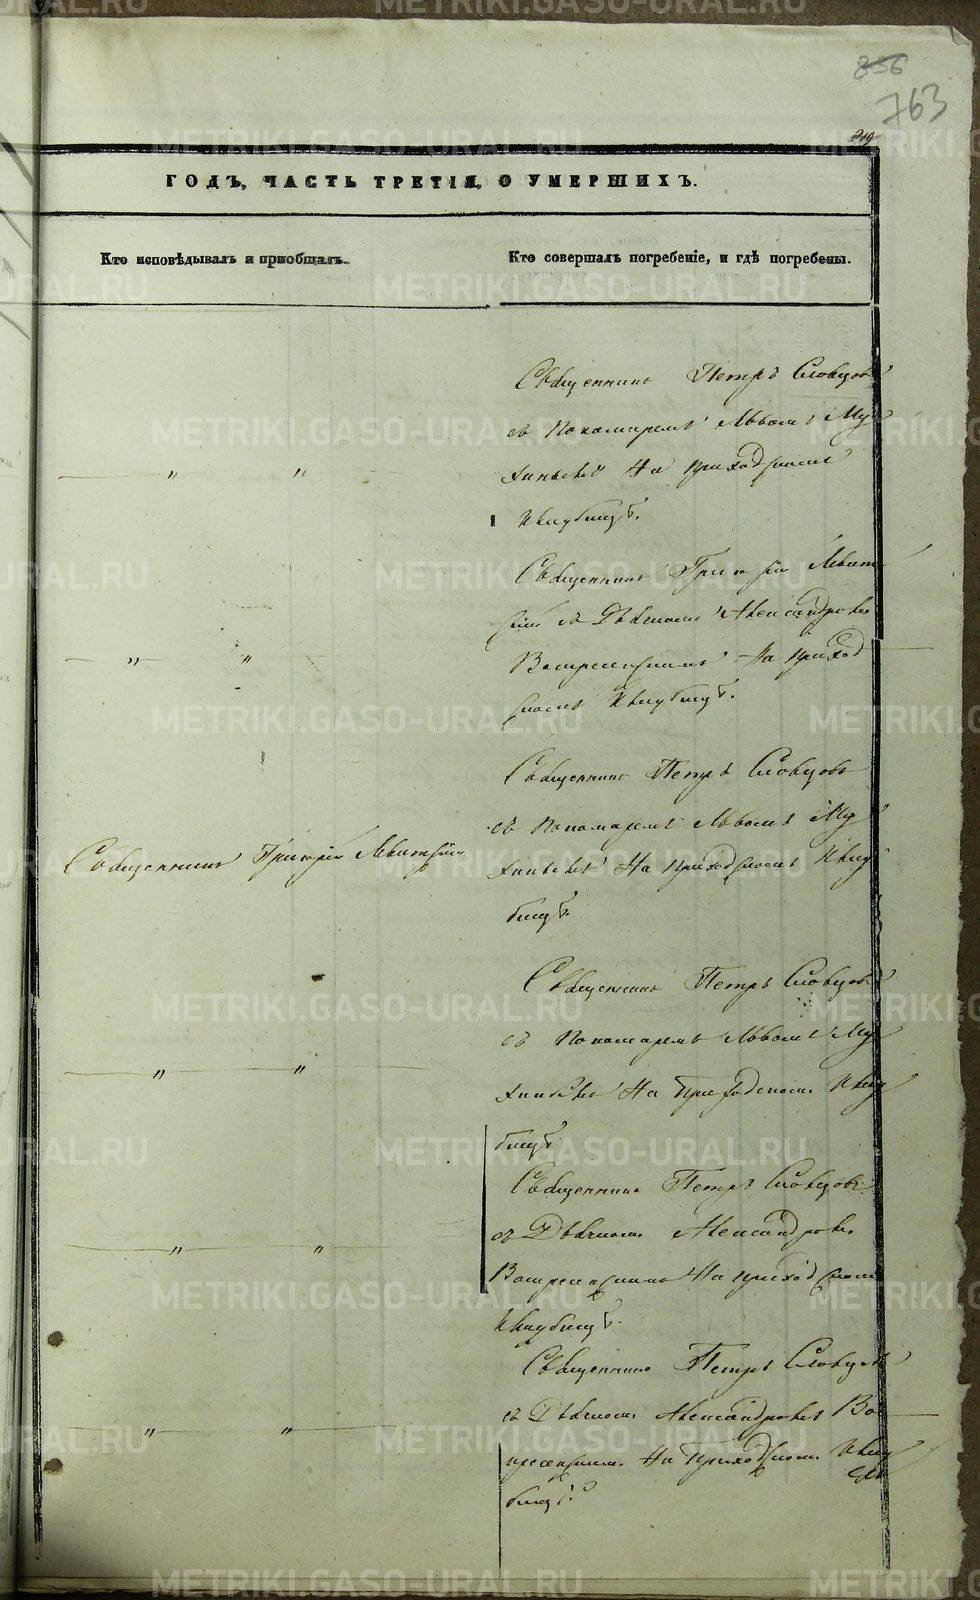 856
763
219
ГОДЪ, ЧАСТЬ ТРЕТІЯ, О УМЕРШИХЪ.
Кто исповѣдывалъ и пріобщалъ.
Кто совершалъ погребеніе, и гдѣ погребены.
Священникъ Петръ Словцовъ
съ Пономаремъ Львомъ Му
хинымъ На приходскомъ
Кладбищѣ.
Священникъ Григорій Левит
скій съ Дьячкомъ Александромъ
Воскресенскимъ На приход
скомъ Кладбищѣ.
Священникъ Петръ Словцовъ
съ Пономаремъ Львомъ Му
хинымъ На приходскомъ Клад
бищѣ.
Священникъ Григорій Левитскій
Священникъ Петръ Словцовъ
съ Пономаремъ Львомъ Му
хинымъ На Приходскомъ Клад
бищѣ
Священникъ Петръ Словцовъ
съ Дьячкомъ Александромъ
Воскресенскимъ На приходскомъ
Кладбищѣ.
Священникъ Петръ Словцовъ
съ Дьячкомъ Александромъ Во
скресенскимъ На приходскомъ Клад
бищѣ.
METRIKI.GASO-URAL.RU